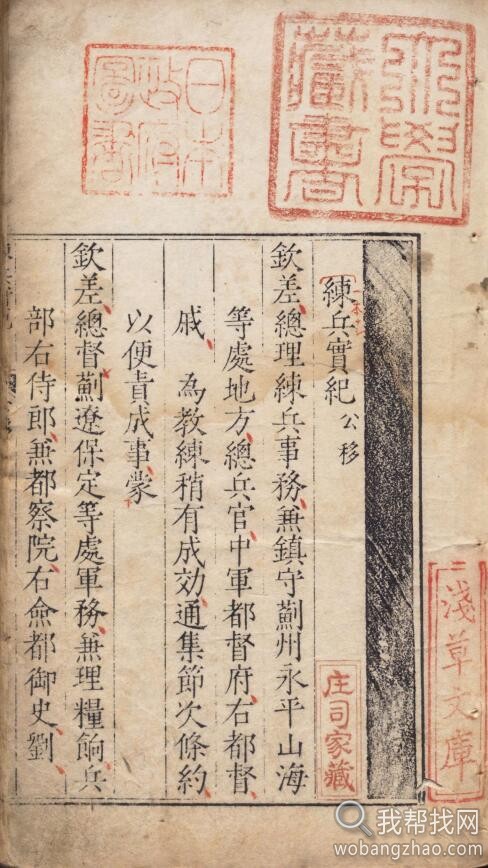 練兵實紀 公移
欽差總理練兵事務兼鎮守薊州永平山海
等處地方總兵官中軍都督府右都督
戚 為教練稍有成効通集節次條約
以便責成事蒙
欽差總督薊遼保定等處軍務兼理糧餉兵
部右侍郎兼都察院右僉都御史劉
日本
政府
圖書
藏書
淺草文庫
庄司家藏
我帮找网
wobangzhao.com